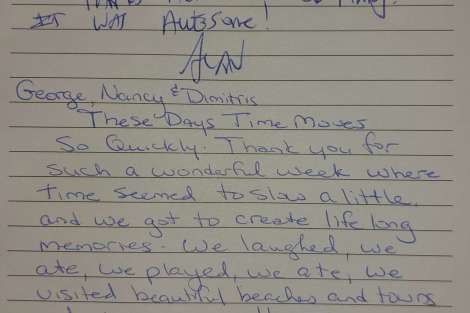 IT WAS AWESOME!
George, Nancy & Dimitris
These Days Time Moves
So Quickly. Thank you for
such a wonderful week where
time seemed to slow a little,
and we got to create life long
memories. We laughed, we
ate, we played, we ate, we
visited beautiful beaches and tours